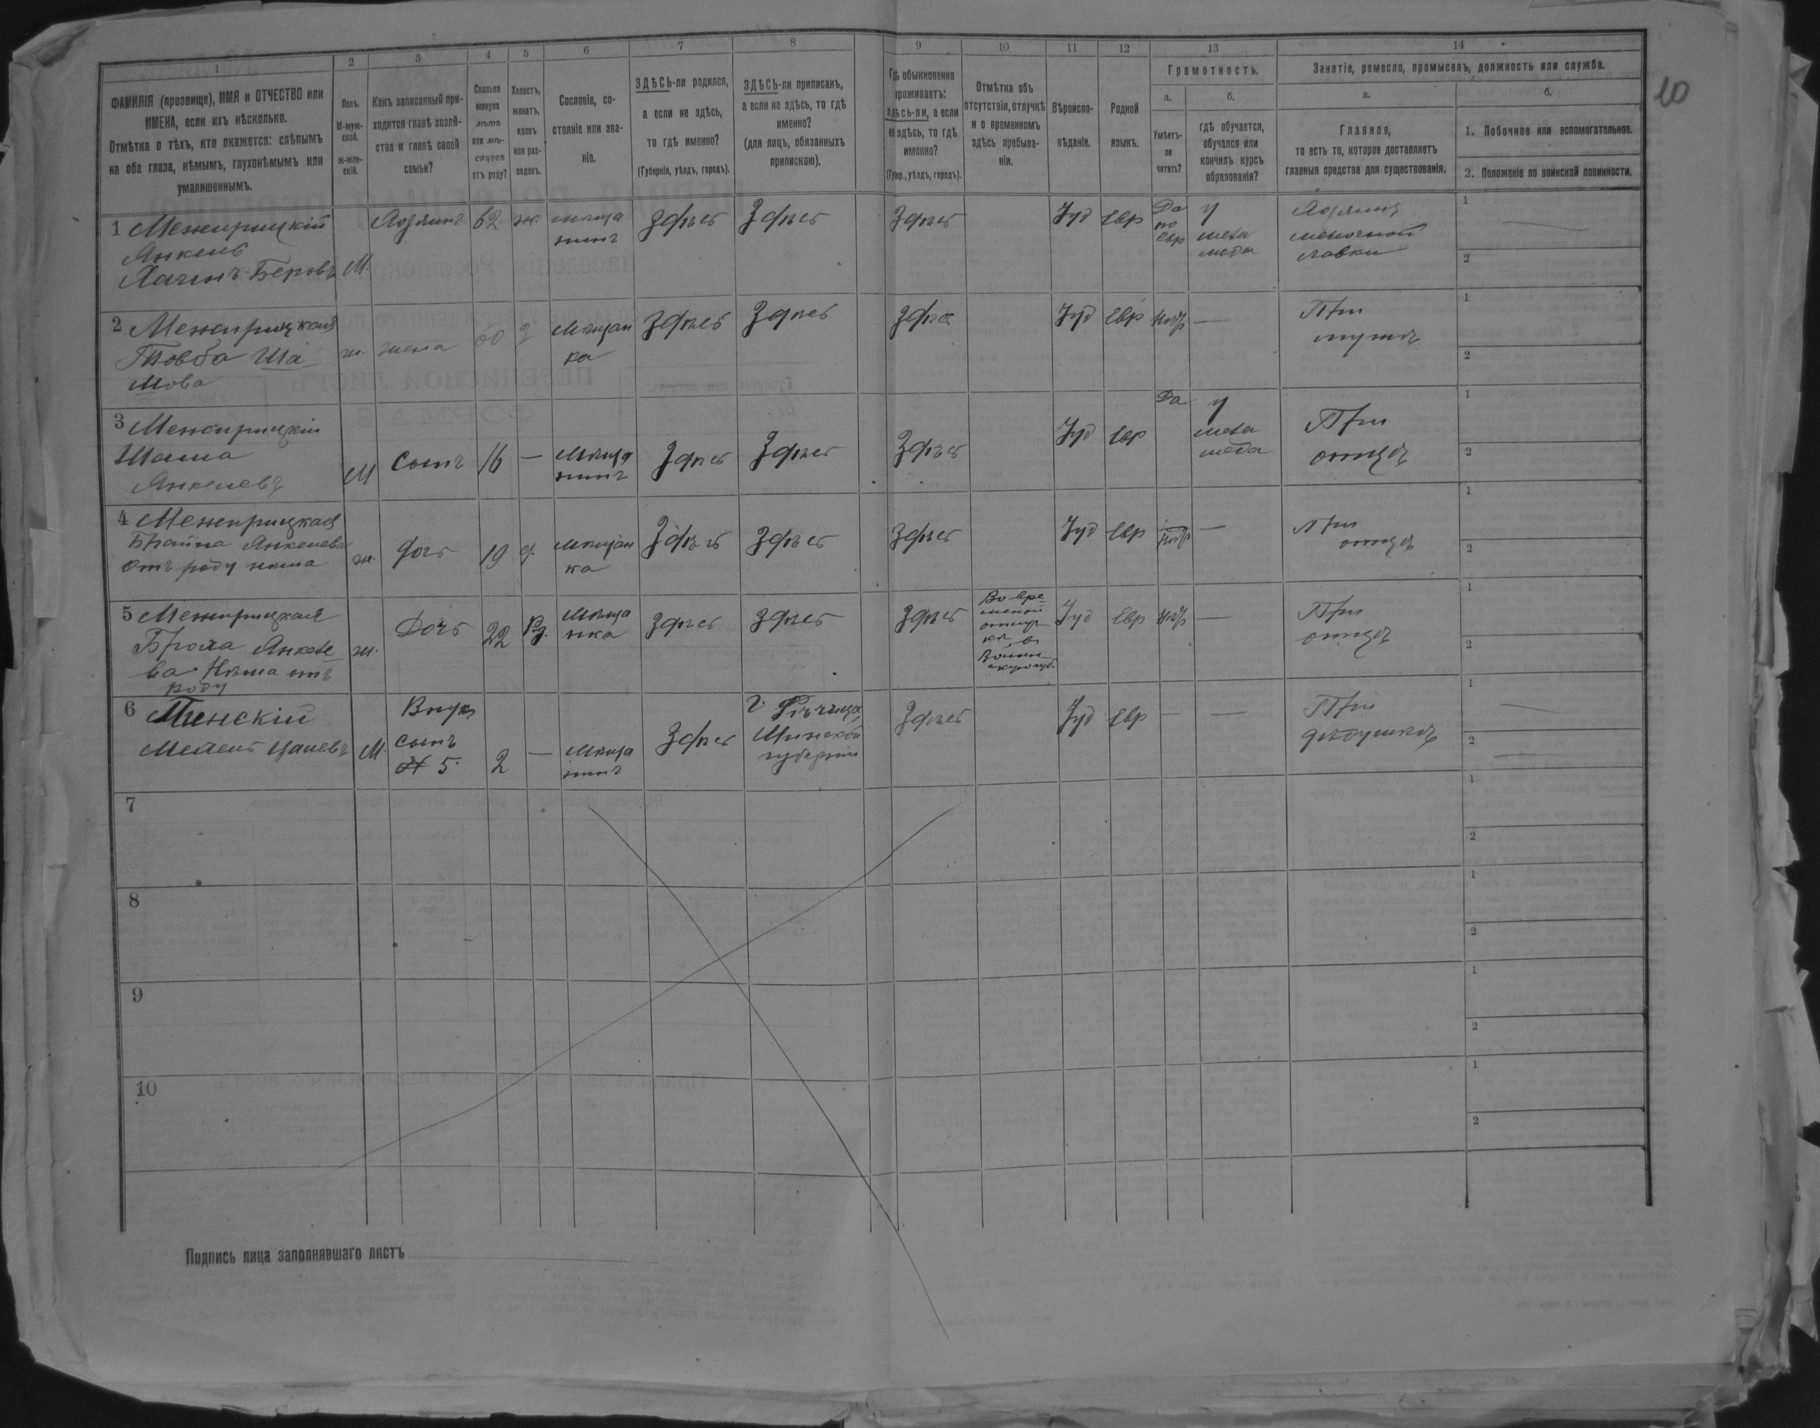 10
1 2 3 4 5 6 7 8 9 10 11 12 13 14
ФАМИЛІЯ (прозвище), ИМЯ и ОТЧЕСТВО или
ИМЕНА, если ихъ нѣсколько.
Отмѣтка о тѣхъ, кто окажется: слѣпымъ
на оба глаза, нѣмымъ, глухонѣмымъ или
умалишеннымъ.
Полъ.
М-муж-
ской.
ж-жен-
скій.
Какъ записанный при-
ходится главѣ хозяй-
ства и главѣ своей
семьи?
Сколько
минуло
лѣтъ
или мѣ-
сяцевъ
отъ роду?
Холостъ,
женатъ,
вдовъ
или раз-
веденъ.
Сословіе, со-
стояніе или зва-
ніе.
ЗДѢСЬ-ли родился,
а если не здѣсь,
то гдѣ именно?
(Губернія, уѣздъ, городъ).
ЗДѢСЬ-ли приписанъ,
а если не здѣсь, то гдѣ
именно?
(для лицъ, обязанныхъ
припискою).
Гдѣ обыкновенно
проживаетъ:
здѣсь-ли, а если
не здѣсь, то гдѣ
именно?
(Губер., уѣздъ, городъ).
Отмѣтка объ
отсутствіи, отлучкѣ
и о временномъ
здѣсь пребыва-
ніи.
Вѣроиспо-
вѣданіе.
Родной
языкъ.
Грамотность.
а.
Умѣетъ-
ли
читать?
б.
гдѣ обучается,
обучался или
кончилъ курсъ
образованія?
Занятіе, ремесло, промыселъ, должность или служба.
а.
Главное,
то есть то, которое доставляетъ
главныя средства для существованія.
б.
1. Побочное или вспомогательное.
2. Положеніе по воинской повинности.
1 Межирицкій
Янкель
Хаимъ-Беровъ
М
Хозяинъ
62
ж.
мѣща
нинъ
Здѣсь
Здѣсь
Здѣсь
Іуд
евр
Да
по
евр
У
мела
меда
Хозяинъ
мелочной
лавки
1
2
2 Межирицкая
Товба Ша
мова
ж.
жена
60
З
Мѣщан
ка
Здѣсь
Здѣсь
Здѣсь
Іуд
евр
—
При
мужѣ
1
2
3 Межирицкій
Шама
Янкелевъ
М
Сынъ
16
—
Мѣща
нинъ
Здѣсь
Здѣсь
Здѣсь
Іуд
евр
Да
У
мела
меда
При
отцѣ
1
2
4 Межирицкая
Брайна Янкелева
отъ роду нѣма
ж.
Дочь
19
д.
мѣщан
ка
Здѣсь
Здѣсь
Здѣсь
Іуд
евр
—
При
отцѣ
1
2
5 Межирицкая
Броха Янкеле
ва Нѣма отъ
роду
ж.
Дочь
22
Рз.
Мѣща
нка
Здѣсь
Здѣсь
Здѣсь
Во вре
менной
отлуч
кѣ въ
Іуд
Евр
—
При
отцѣ
1
2
6 Пинскій
М
Внукъ
сынъ
№ 5.
2
—
Мѣща
нинъ
Здѣсь
г Рѣчица
Минской
губерніи
Здѣсь
Іуд
евр
—
—
При
дѣдушкѣ
1
2
7
1
2
8
1
2
9
1
2
10
1
2
Подпись лица заполнявшаго листъ